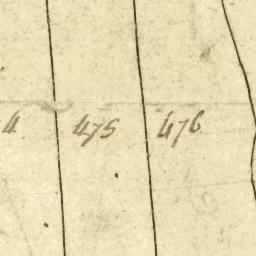 4 475 476